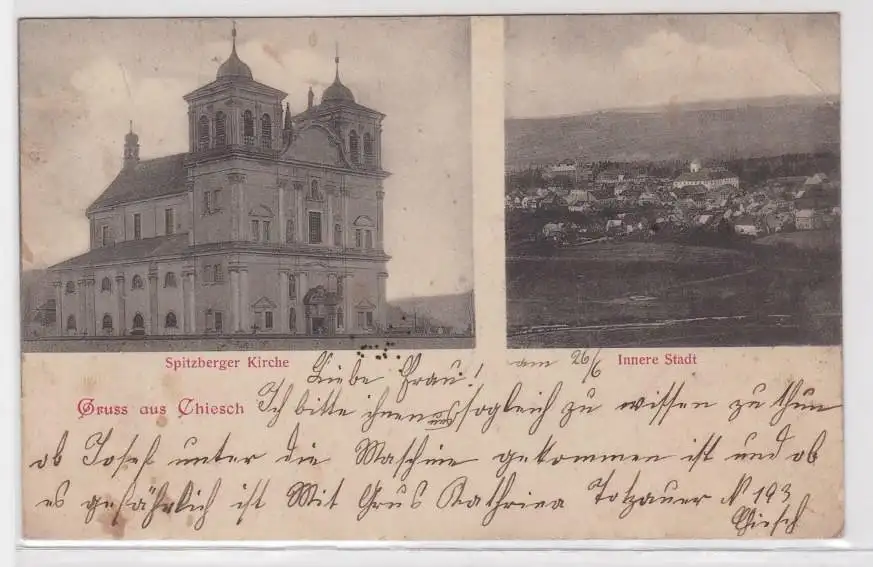 Spitzberger Kirche
Innere Stadt
Gruss aus Chiesch
am 26/6
Liebe Frau!
Ich bitte ihnen uns sogleich zu wissen zu thun
ob Josef unter die Maschine gekommen ist und ob
es gefährlich ist Mit Grus Kathrina Totzauer N 193
Chiesch